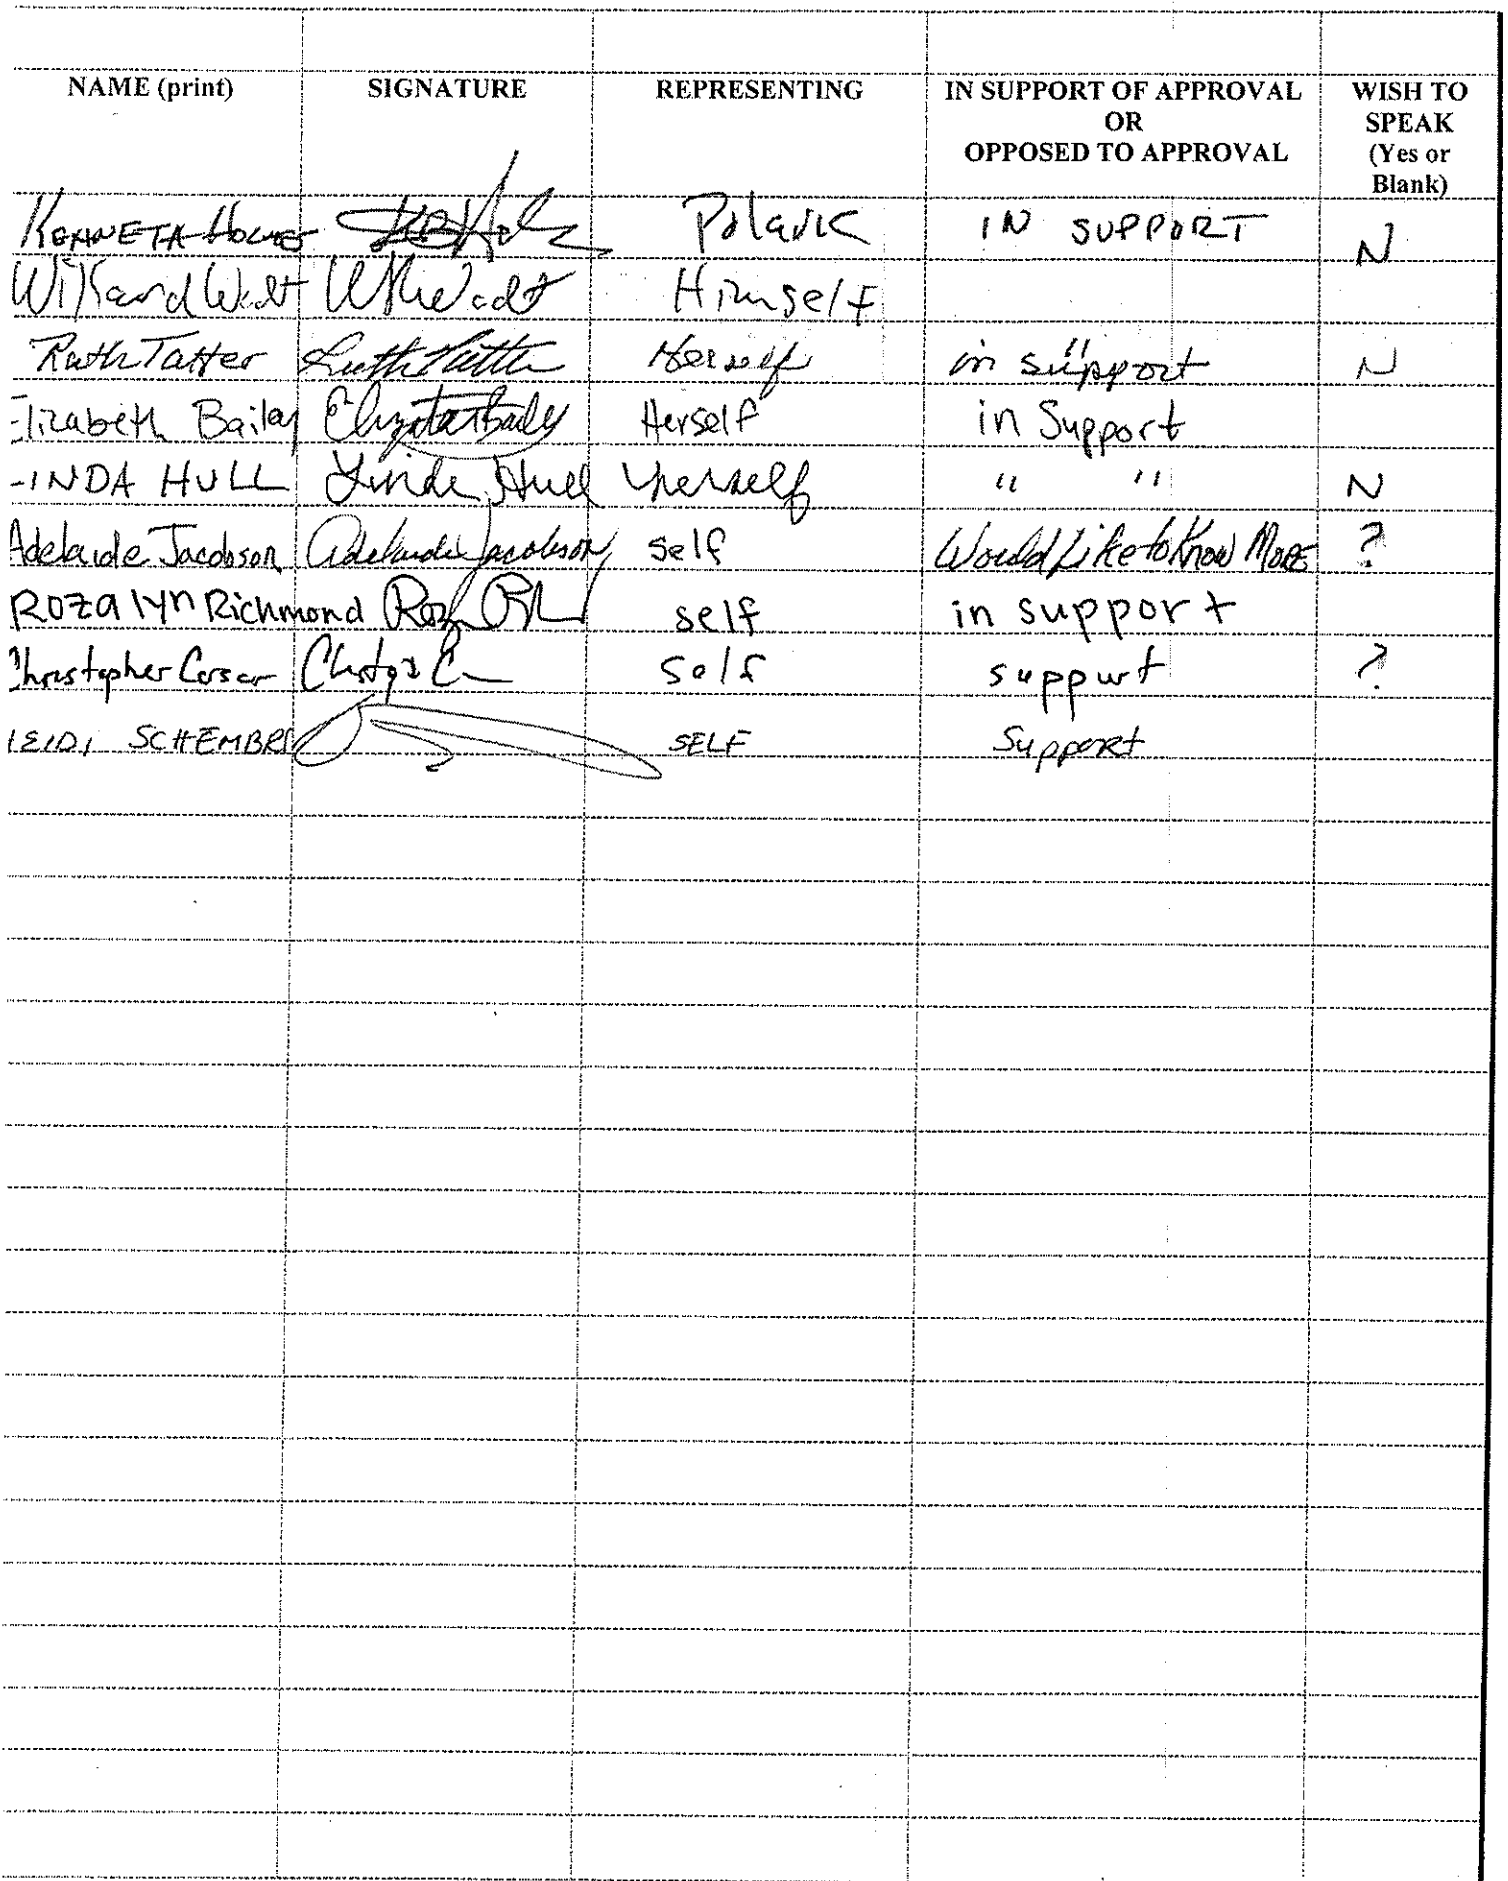 NAME (print) SIGNATURE REPRESENTING IN SUPPORT OF APPROVAL WISH TO
OR SPEAK
OPPOSED TO APPROVAL (Yes or
Blank)
KENNETH HOLMES Polarik IN SUPPORT N
Himself
Ruth Tatter Ruth Tatter Herself in support N
Elizabeth Bailey Elizabeth Bailey Herself in Support
INDA HULL Linda Hull herself " " N
Adelaide Jacobson Adelaide Jacobson self Would Like to Know More ?
Rozalyn Richmond self in support
Christopher self support ?
EIDI SCHEMBRI SELF Support